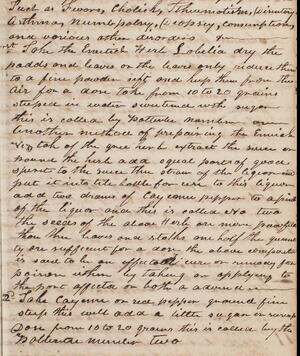 Such as Fevors Cholicks Rheumotism Disentary
Asthmas Numb palsy Dropsy consumptions
and various other disorders
1st Take the Emetick Herb Lobelia dry the
padds and leaves or the leaves only reduce them
to a fine powder sift and keep them from the
air for a dose take from 10 to 20 grains
steeped in water sweetened with sugar
this is called by number one
Another method of preparing the Emetick
take of the green herb extract the juice or
pound the herb add equal parts of good
spirit to the juice then strain of the liquor and
put it into tite bottle for use to this liquor
add two drams of Cayenne pepper to a pint
of the liquor and this is called No two
the seeds of the above Herb are more powerful
than the leaves and stalks one half the quanti
ty are sufficient for a dose the above composition
is said to be an effectual cure or remedy for
poison either by taking or applying to
the part affected or both as advised
2d Take Cayenne or red pepper ground fine
steep this will add a little sugar or syrup
Dose from 10 to 20 grains this is called by the
number two